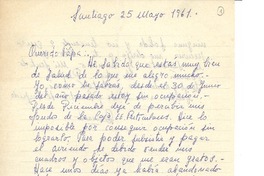 Santiago 25 Mayo 1961.
Querido Papa:
He sabido que estas muy bien
de salud de lo que me alegro mucho.
Yo como tu sabras, desde el 30 de Junio
del año pasado estoy sin ocupación.
Desde Diciembre deje de percibir mis
fondos de la Caja de Particulares. Que lo
imposible por conseguir ocupación sin
lograrlo. Para poder subsistir y pagar
el arriendo he debido vender mis
cuadros y objetos que me eran gratos.
Hace unos días ya había abandonado